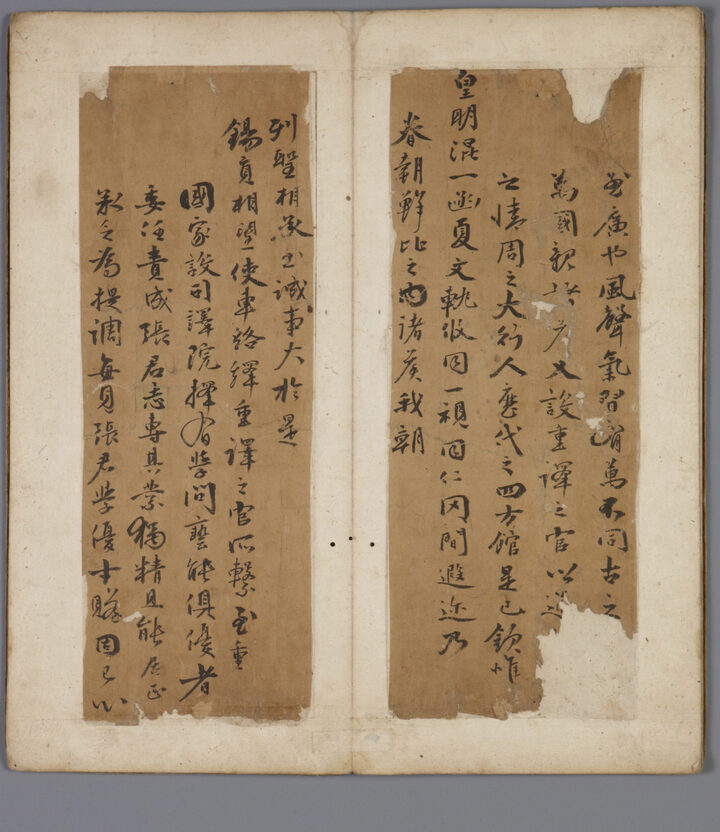 廣也風聲氣習有萬不同古之
萬國親諸侯又設重譯之官以達
之情周之大行人歷代之四方館是已欽惟
皇明混一函夏文軌攸同一視同仁罔間遐迩乃
眷朝鮮比之內諸侯我朝
列聖相承至誠事大於是
錫賚相望使車絡繹重譯之官所繫至重
國家設司譯院擇有學問藝能俱優者
委任責成張君志專其業獨精且能居正
承乏為提調每見張君學優才贍固已心